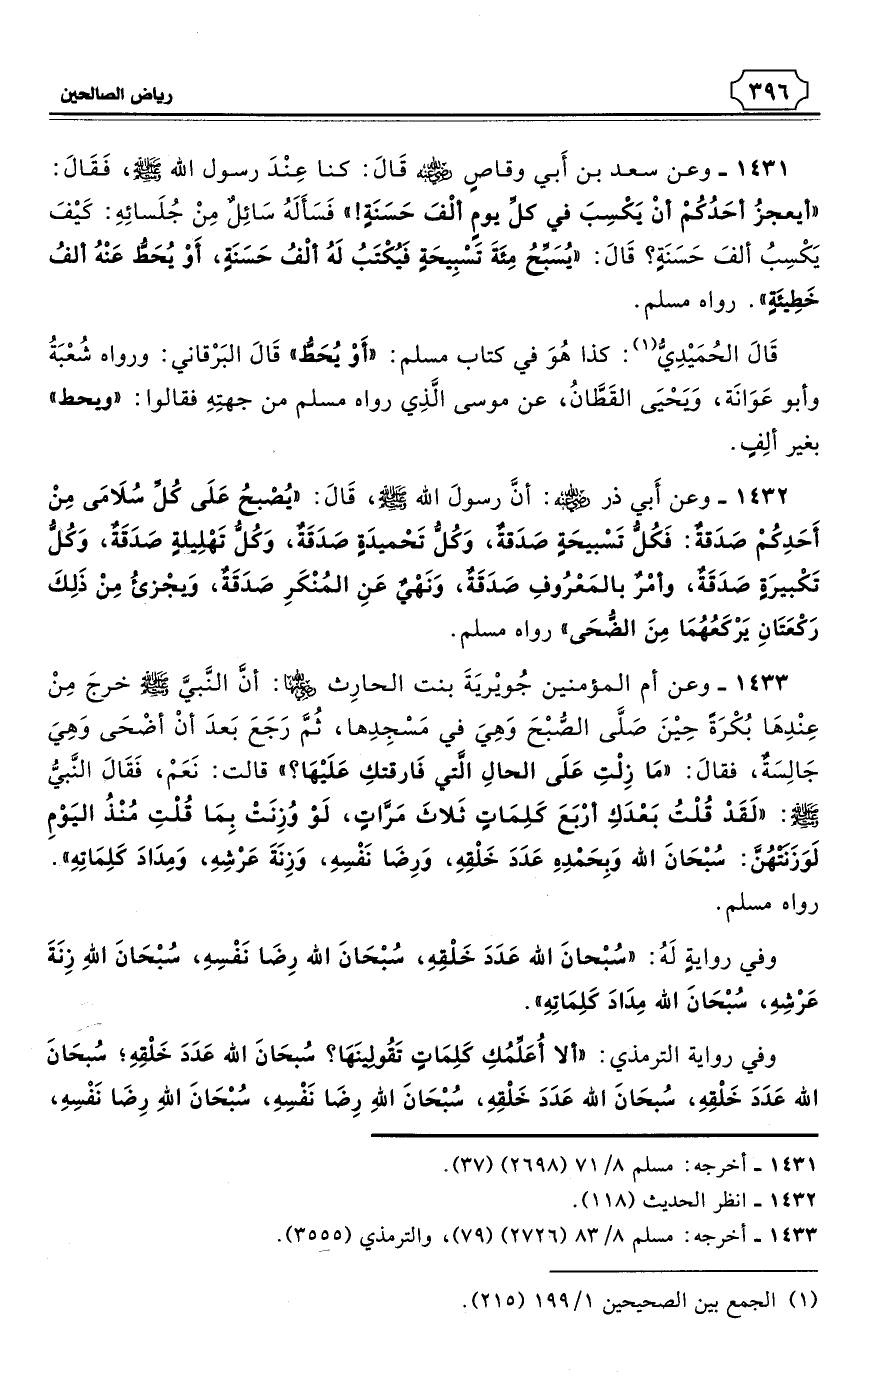 ٣٩٦
رياض الصالحين
١٤٣١ ـ وعن سعد بن أَبي وقاصٍ ﵁ قَالَ: كنا عِنْدَ رسول الله ﷺ، فَقَالَ:
«أيعجزُ أحَدُكُمْ أنْ يَكْسِبَ في كلِّ يومٍ ألْفَ حَسَنَةٍ!» فَسَأَلَهُ سَائِلٌ مِنْ جُلَسائِهِ: كَيْفَ
يَكْسِبُ ألفَ حَسَنَةٍ؟ قَالَ: «يُسَبِّحُ مِئَةَ تَسْبِيحَةٍ فَيُكْتَبُ لَهُ ألْفُ حَسَنَةٍ، أَوْ يُحَطُّ عَنْهُ ألفُ
خَطِيئَةٍ». رواه مسلم.
قَالَ الحُمَيْدِيُّ(١): كذا هُوَ في كتاب مسلم: «أَوْ يُحَطُّ» قَالَ البَرْقاني: ورواه شُعْبَةُ
وأبو عَوَانَة، وَيَحْيَى القَطَّانُ، عن موسى الَّذِي رواه مسلم من جهتِهِ فقالوا: «ويحط»
بغير ألِفٍ.
١٤٣٢ ـ وعن أَبي ذر ﵁: أنَّ رسولَ الله ﷺ، قَالَ: «يُصْبحُ عَلَى كُلِّ سُلَامَى مِنْ
أَحَدِكُمْ صَدَقةٌ: فَكُلُّ تَسْبيحَةٍ صَدَقةٌ، وَكُلُّ تَحْميدَةٍ صَدَقَةٌ، وَكُلُّ تَهْلِيلةٍ صَدَقَةٌ، وَكُلُّ
تَكْبيرَةٍ صَدَقَةٌ، وأمْرٌ بالمَعْرُوفِ صَدَقَةٌ، وَنَهْيٌ عَنِ المُنْكَرِ صَدَقَةٌ، وَيجْزئُ مِنْ ذَلِكَ
رَكْعَتَانِ يَرْكَعُهُمَا مِنَ الضُّحَى» رواه مسلم.
١٤٣٣ ـ وعن أم المؤمنين جُويْريَةَ بنت الحارِث ﵂: أنَّ النَّبيَّ ﷺ خرجَ مِنْ
عِنْدِهَا بُكْرَةً حِيْنَ صَلَّى الصُّبْحَ وَهِيَ في مَسْجِدِها، ثُمَّ رَجَعَ بَعدَ أنْ أضْحَى وَهِيَ
جَالِسَةٌ، فقالَ: «مَا زِلْتِ عَلَى الحالِ الَّتي فَارقتكِ عَلَيْهَا؟» قالت: نَعَمْ، فَقَالَ النَّبيُّ
ﷺ: «لَقَدْ قُلْتُ بَعْدَكِ أرْبَعَ كَلِمَاتٍ ثَلاثَ مَرَّاتٍ، لَوْ وُزِنَتْ بِمَا قُلْتِ مُنْذُ اليَوْمِ
لَوَزَنَتْهُنَّ: سُبْحَانَ الله وَبِحَمْدِهِ عَدَدَ خَلْقِهِ، وَرِضَا نَفْسِهِ، وَزِنَةَ عَرْشِهِ، وَمِدَادَ كَلِمَاتِهِ».
رواه مسلم.
وفي روايةٍ لَهُ: «سُبْحانَ الله عَدَدَ خَلْقِهِ، سُبْحَانَ الله رِضَا نَفْسِهِ، سُبْحَانَ اللهِ زِنَةَ
عَرْشِهِ، سُبْحَانَ الله مِدَادَ كَلِمَاتِهِ».
وفي رواية الترمذي: «ألا أُعَلِّمُكِ كَلِمَاتٍ تَقُولِينَهَا؟ سُبحَانَ الله عَدَدَ خَلْقِهِ؛ سُبحَانَ
الله عَدَدَ خَلْقِهِ، سُبحَانَ الله عَدَدَ خَلْقِهِ، سُبْحَانَ اللهِ رِضَا نَفْسِهِ، سُبْحَانَ اللهِ رِضَا نَفْسِهِ،
١٤٣١ ـ أخرجه: مسلم ٧١/٨ (٢٦٩٨) (٣٧).
١٤٣٢ ـ انظر الحديث (١١٨).
١٤٣٣ ـ أخرجه: مسلم ٨٣/٨ (٢٧٢٦) (٧٩)، والترمذي (٣٥٥٥).
(١) الجمع بين الصحيحين ١٩٩/١ (٢١٥).